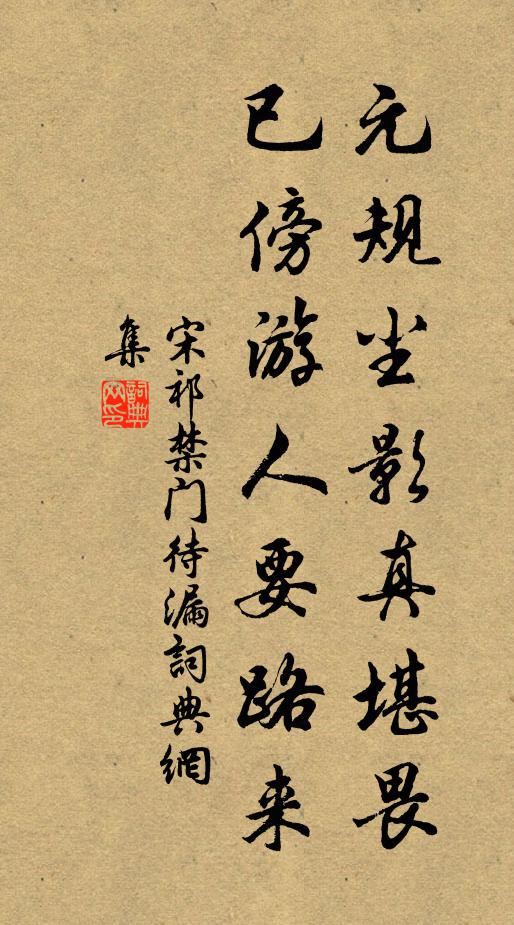 元规尘影真堪畏
已傍游人要路来
宋祁禁门待漏詞典網
集
詞典
网印